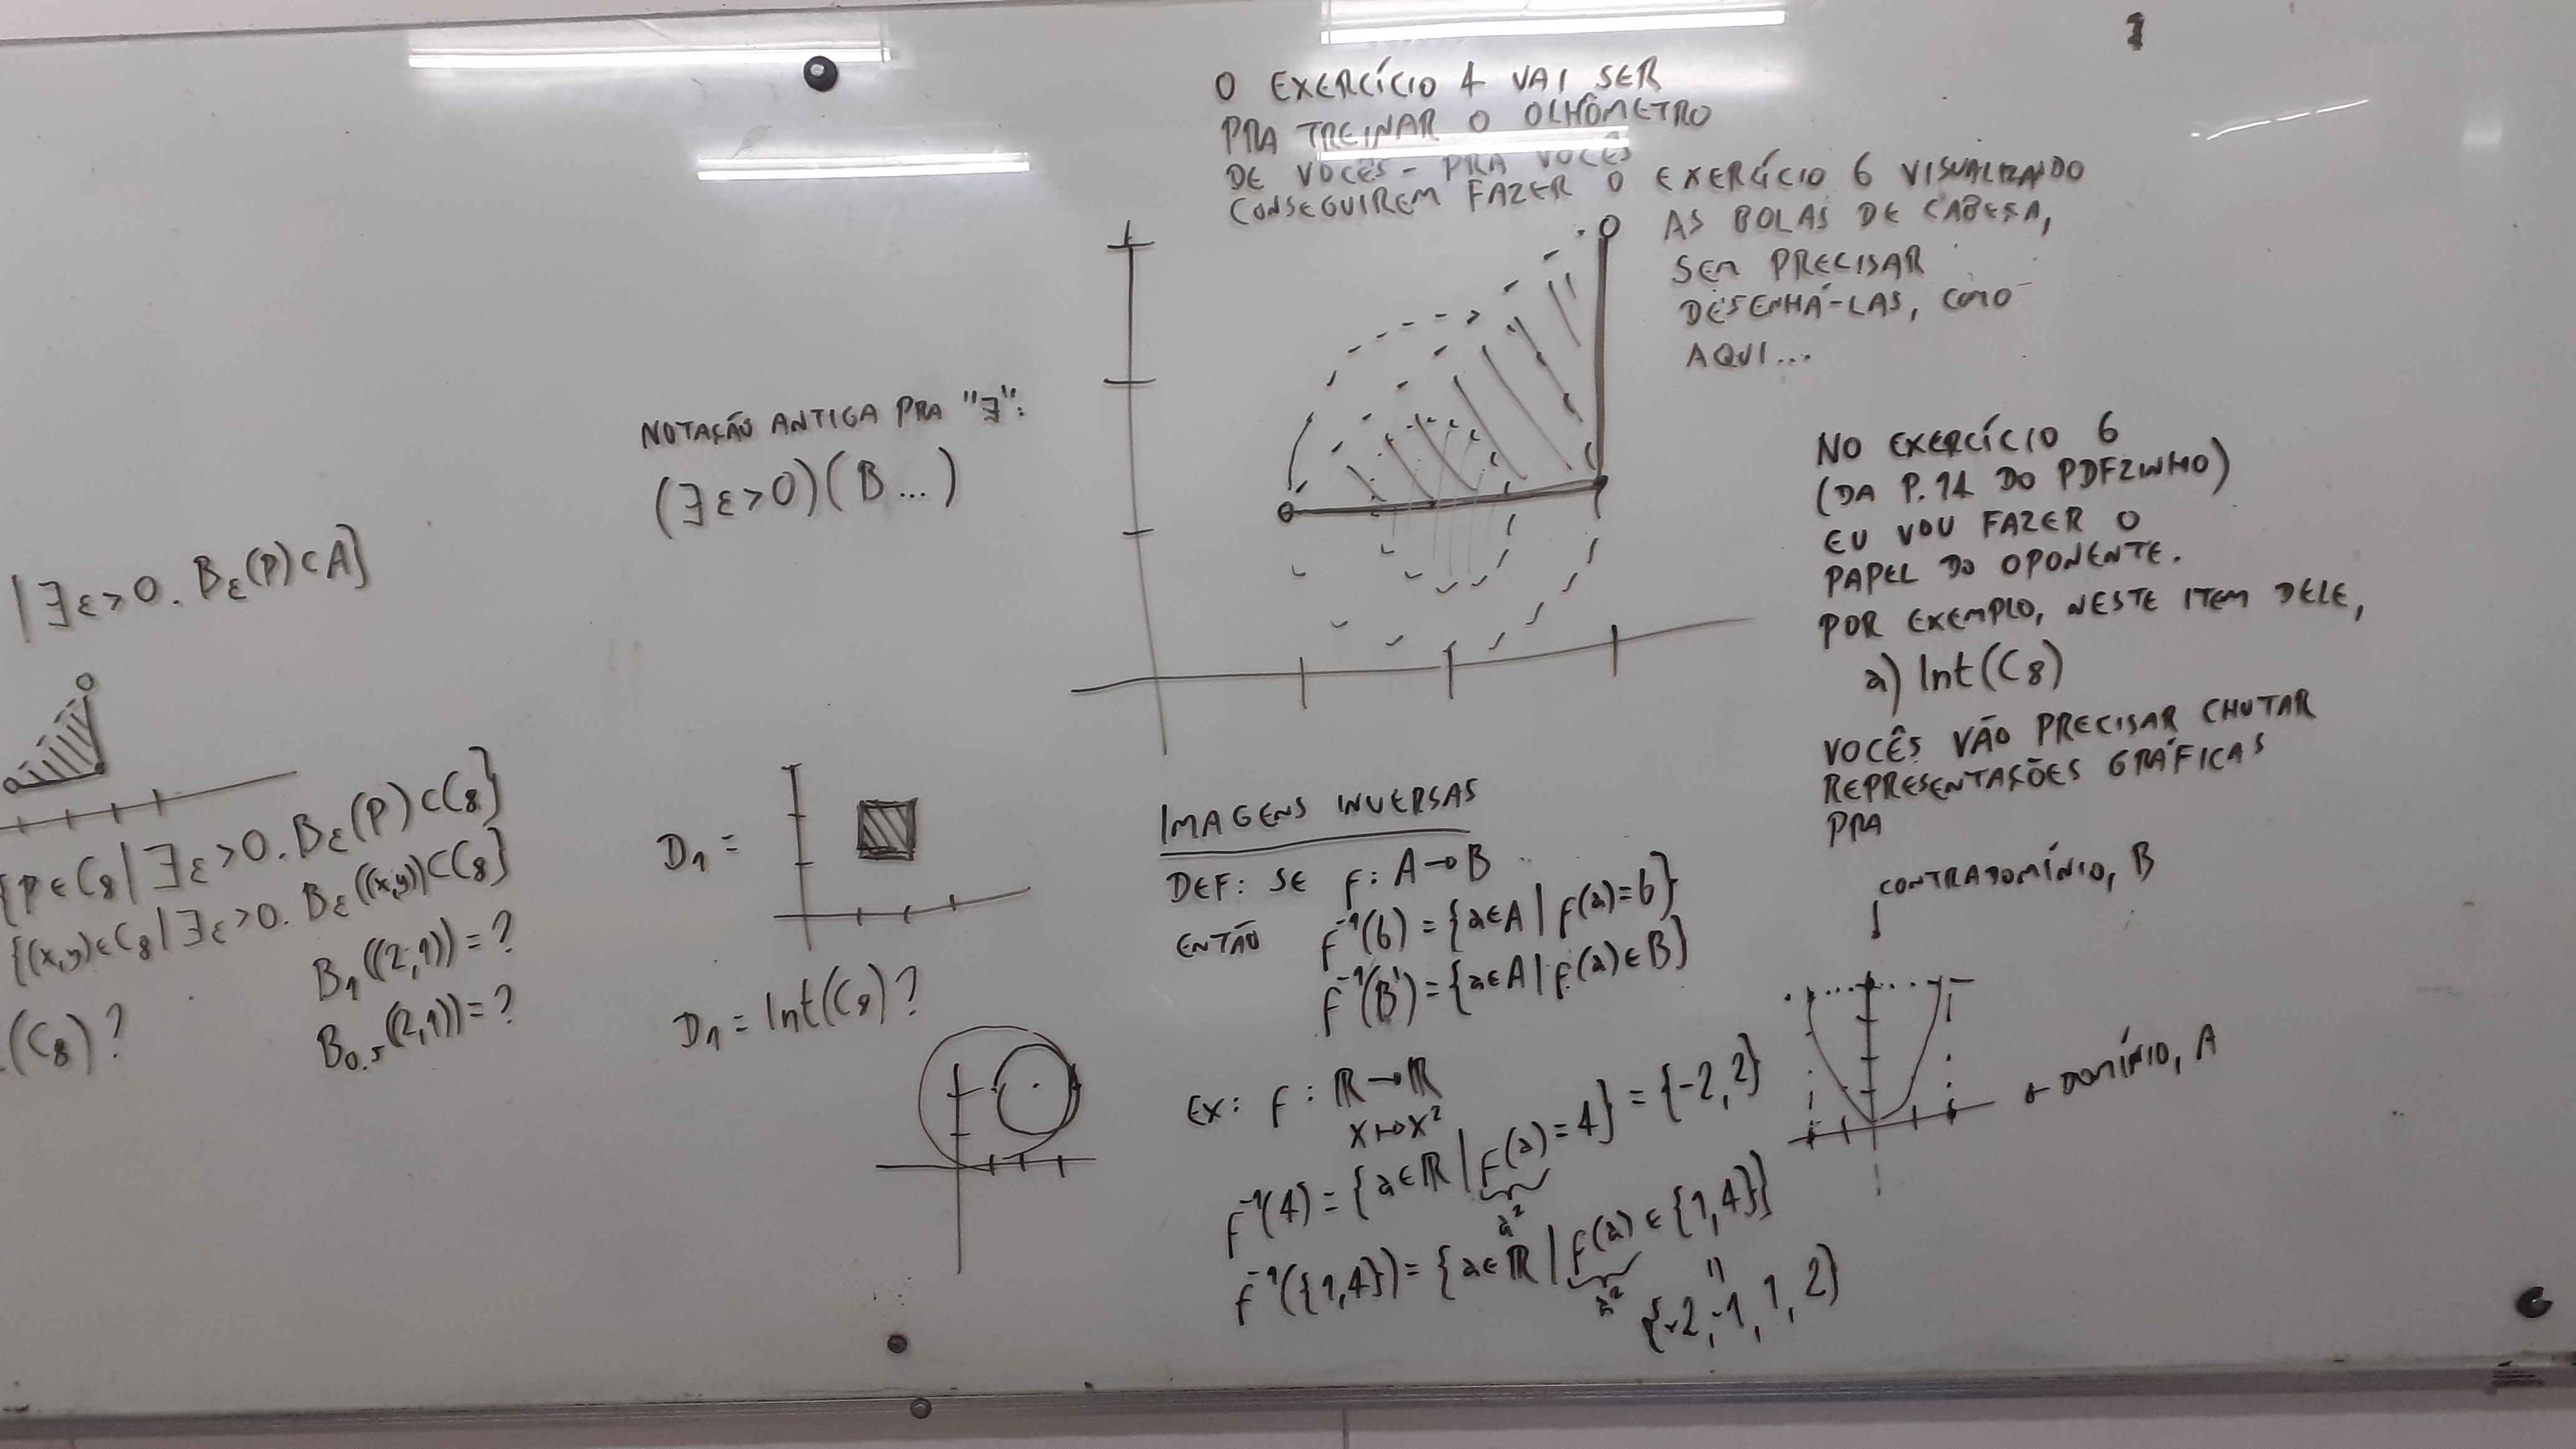 O EXERCÍCIO 4 VAI SER
PRA TREINAR O OLHÔMETRO
DE VOCÊS - PRA VOCÊS
CONSEGUIREM FAZER O EXERCÍCIO 6 VISUALIZANDO
AS BOLAS DE CABEÇA,
SEM PRECISAR
DESENHÁ-LAS, COMO
AQUI...
NOTAÇÃO ANTIGA PRA "∃":
(∃ε>0)(B...)
|∃ε>0. Bε(P)⊂A}
{P∈C8|∃ε>0. Bε(P)⊂C8}
{(x,y)∈C8|∃ε>0. Bε((x,y))⊂C8}
B1((2,1))=?
(C8)?
B0.5((2,1))=?
D1 =
D1 = Int(C8)?
NO EXERCÍCIO 6
(DA P.14 DO PDFZINHO)
EU VOU FAZER O
PAPEL DO OPONENTE.
POR EXEMPLO, NESTE ITEM DELE,
a) Int(C8)
VOCÊS VÃO PRECISAR CHUTAR
REPRESENTAÇÕES GRÁFICAS
PRA
IMAGENS INVERSAS
DEF: SE f: A→B
ENTÃO f⁻¹(b) = {a∈A | f(a)=b}
f⁻¹(B') = {a∈A | f(a)∈B}
EX: f: ℝ→ℝ
x↦x²
f⁻¹(4) = {a∈ℝ | f(a)=4} = {-2,2}
a²
f⁻¹({1,4}) = {a∈ℝ | f(a)∈{1,4}}
a²
=
{-2,-1,1,2}
CONTRADOMÍNIO, B
↓
← DOMÍNIO, A